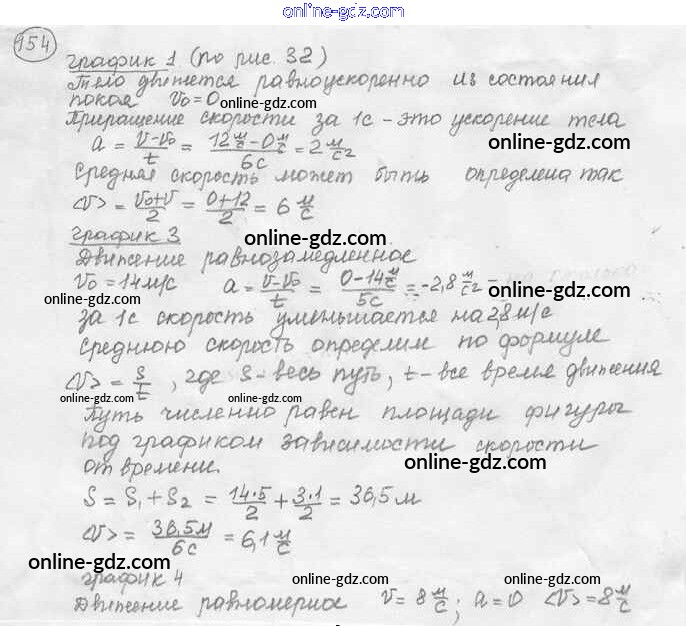 online-gdz.com
154
график 1 (по рис. 32)
Тело движется равноускоренно из состояния
покоя V₀=0
online-gdz.com
Приращение скорости за 1с – это ускорение тела
a = (V-V₀)/t = (12 м/с - 0 м/с)/6с = 2 м/с²
online-gdz.com
Средняя скорость может быть определена так
<V> = (V₀+V)/2 = (0+12)/2 = 6 м/с
график 3
online-gdz.com
Движение равнозамедленное
V₀ = 14м/с a = (V-V₀)/t = (0-14 м/с)/5с = -2,8 м/с²
online-gdz.com
online-gdz.com
За 1с скорость уменьшается на 2,8 м/с
Среднюю скорость определим по формуле
<V> = S/t, где S- весь путь, t - все время движения
online-gdz.com
online-gdz.com
Путь численно равен площади фигуры
под графиком зависимости скорости
от времени.
online-gdz.com
S = S₁ + S₂ = (14·5)/2 + (3·1)/2 = 36,5 м
<V> = 36,5м/6с = 6,1 м/с
online-gdz.com
график 4
online-gdz.com
online-gdz.com
Движение равномерное V = 8 м/с; a = 0 <V> = 8 м/с